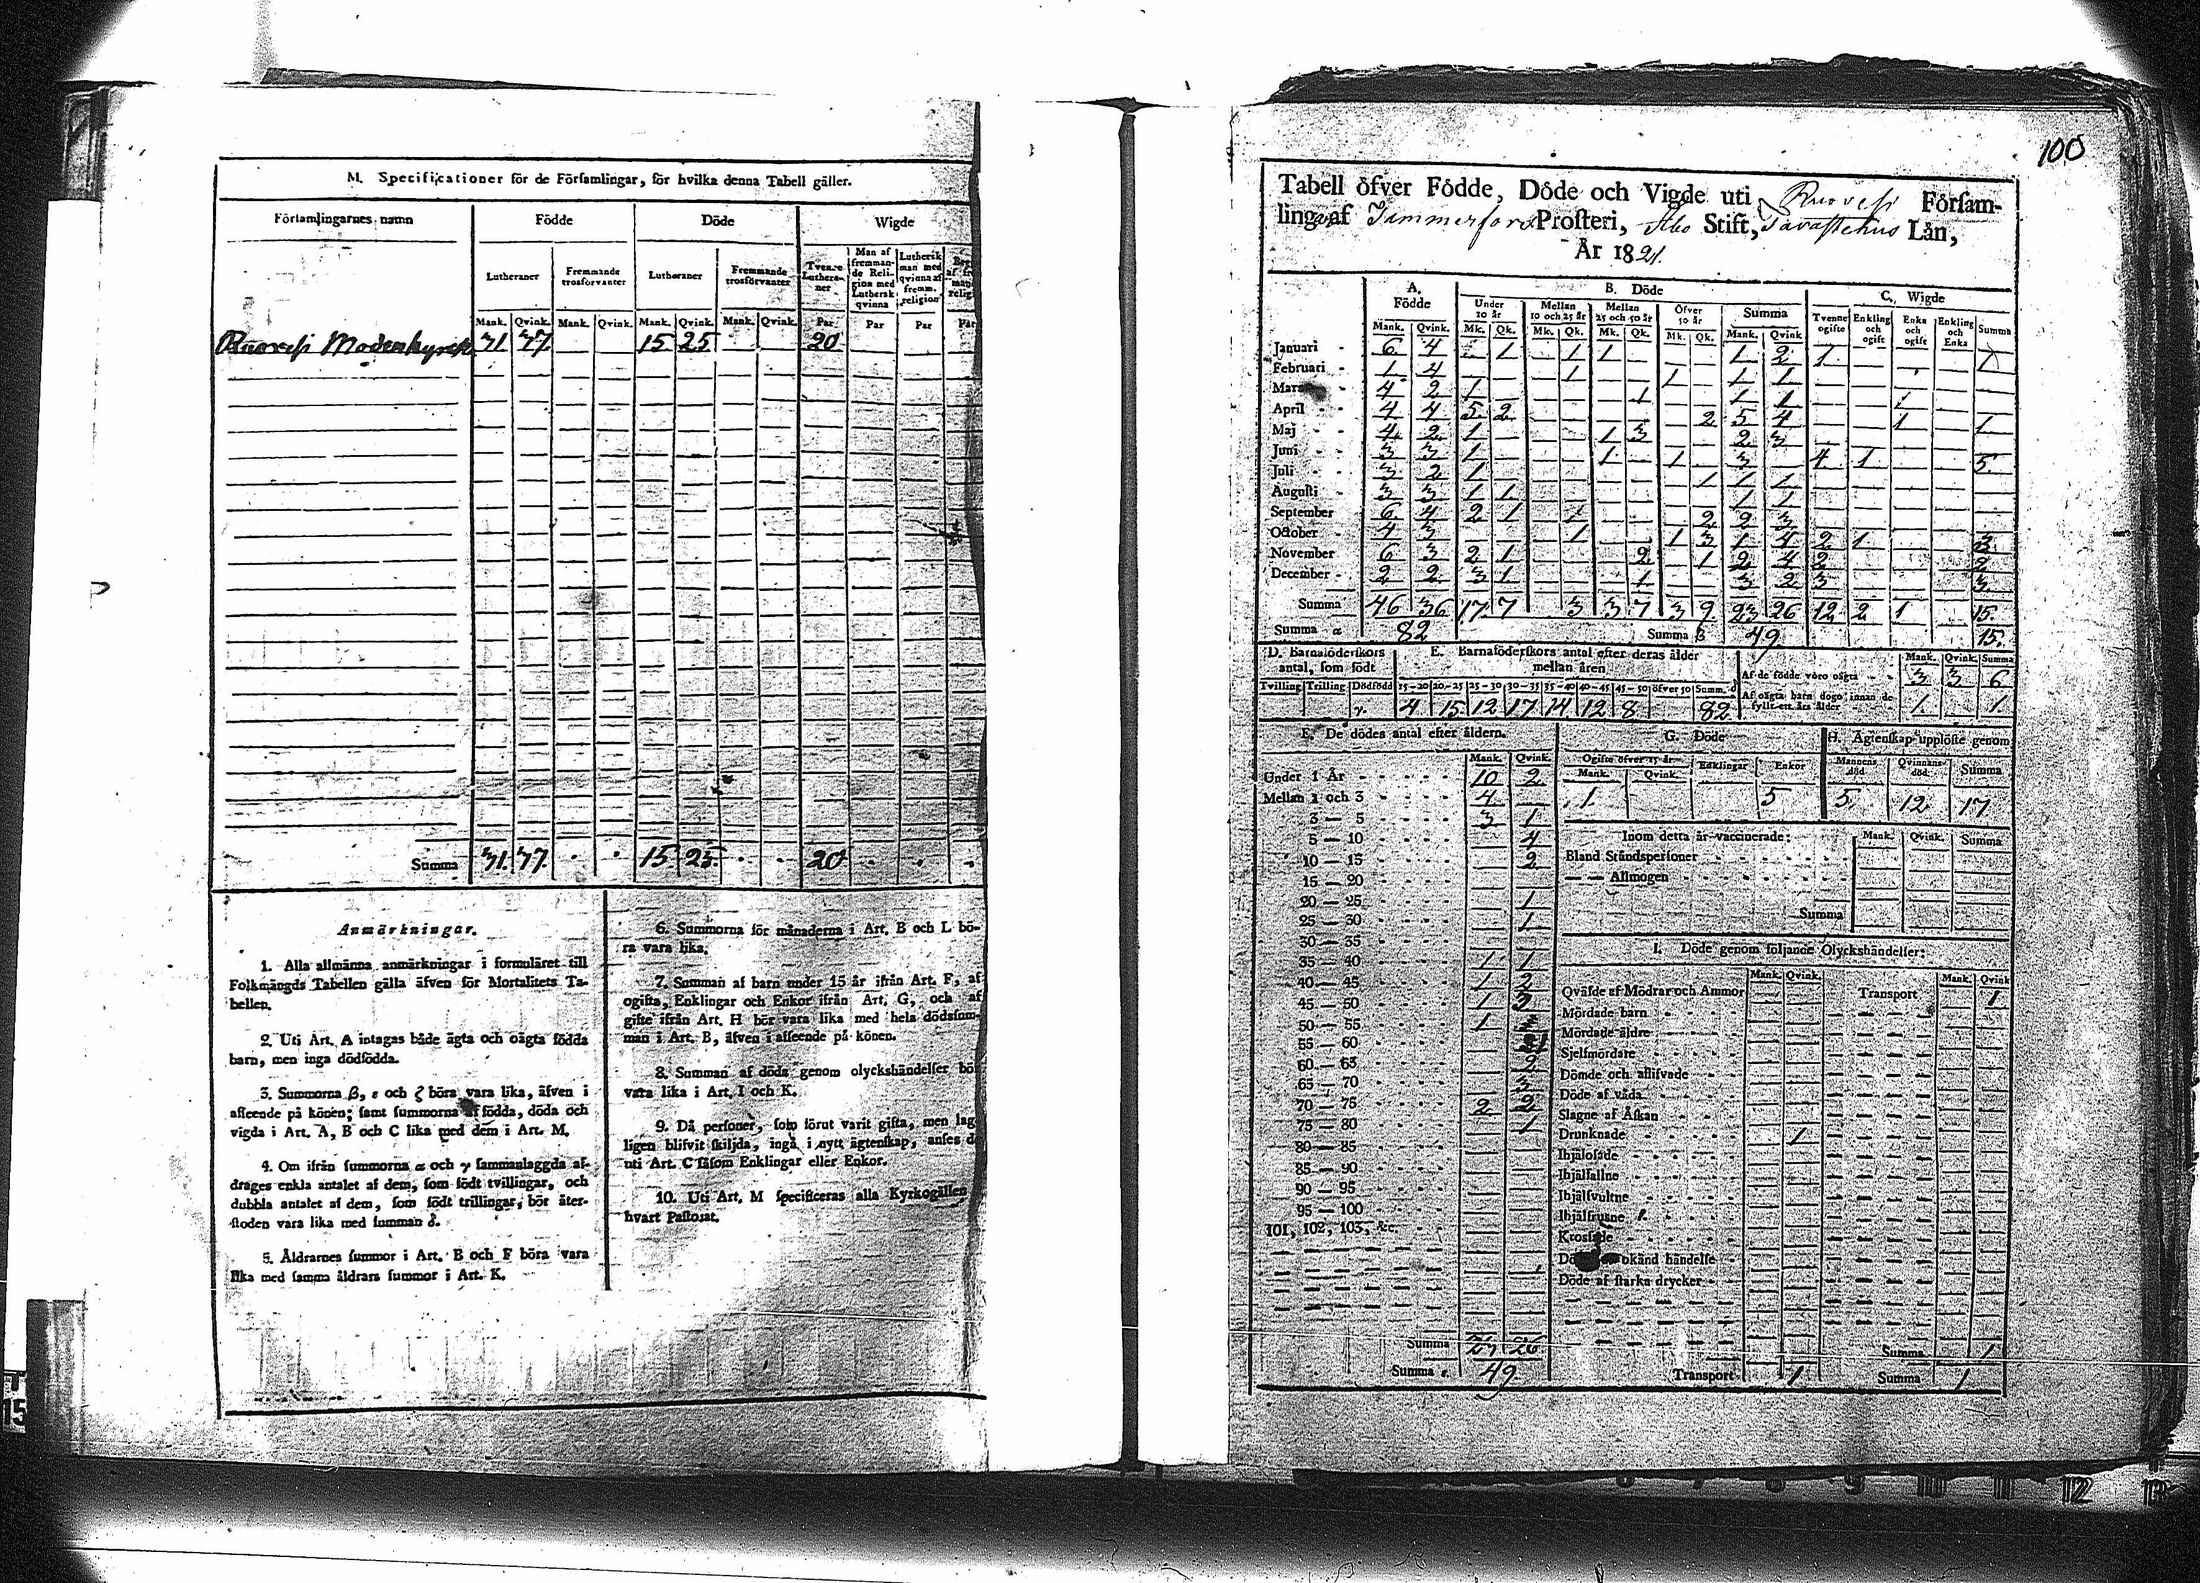 M. Specificationer för de Församlingar, för hvilka denna Tabell gäller.
Församlingarnes namn Födde Döde Wigde
Lutheraner Fremmande trosförvanter Lutheraner Fremmande trosförvanter Tvenne Lutheraner Man af fremmande Religion med Luthersk qvinna Luthersk man med qvinna af fremm. religion
Mank. Qvink. Mank. Qvink. Mank. Qvink. Mank. Qvink. Par Par Par Par
Ruovesi Moderkyrck 31 37 15 25 20
Summa 31. 37. 15 25 20
Anmärkningar.
1. Alla allmänna anmärkningar i formuläret till
Folkmängds Tabellen gälla äfven för Mortalitets Ta-
bellen.
2. Uti Art. A intagas både ägta och oägta födda
barn, men inga dödfödda.
3. Summorna β, ε och ζ böra vara lika, äfven i
afseende på könen; samt summorna af födda, döda och
vigda i Art. A, B och C lika med dem i Art. M.
4. Om ifrån summorna α och γ sammanlaggda af-
drages enkla antalet af dem, som födt tvillingar, och
dubbla antalet af dem, som födt trillingar, bör åter-
stoden vara lika med summan δ.
5. Åldrarnes summor i Art. B och F böra vara
lika med samma åldrars summor i Art. K.
6. Summorna för månaderna i Art. B och L bö-
ra vara lika.
7. Summan af barn under 15 år ifrån Art. F, af
ogifta, Enklingar och Enkor ifrån Art. G, och af
gifte ifrån Art. H bör vara lika med hela dödssum-
man i Art. B, äfven i afseende på könen.
8. Summan af döda genom olyckshändelser bör
vara lika i Art. I och K.
9. Då personer, som förut varit gifta, men lag-
ligen blifvit skiljda, ingå i nytt ägtenskap, anses de
uti Art. C såsom Enklingar eller Enkor.
10. Uti Art. M specificeras alla Kyrkogällen
hvart Pastorat.
100
Tabell öfver Födde, Döde och Vigde uti Ruovesi Församling
af Tammerfors Prosteri, Åbo Stift, Tavastehus Län,
År 1821.
A. Födde B. Döde C. Wigde
Under 10 år Mellan 10 och 25 år Mellan 25 och 50 år Öfver 50 år Summa Tvenne ogifte Enkling och ogift Enka och ogift Enkling och Enka Summa
Mank. Qvink. Mk. Qk. Mk. Qk. Mk. Qk. Mk. Qk. Mank. Qvink
Januari 6 4 1 1 1 1 2 1 1
Februari 1 4 1 1 1 1
Mars 4 2 1 1 1 1
April 4 4 5 2 2 5 4 1 1
Maj 4 2 1 1 3 2 3
Juni 3 3 1 1 1 3 4 1 5
Juli 3 2 1 1 1 1
Augusti 3 3 1 1 1 1
September 6 4 2 1 1 2 2 3
October 4 3 1 1 3 1 4 2 1 3
November 6 3 2 1 2 1 2 4 2 2
December 2 2 3 1 1 3 2 3 3
Summa 46 36 17. 7 3 3 7 3 9. 23 26 12 2 1 15.
Summa α 82 Summa β 49. 15.
D. Barnaföderskors antal, som födt
Tvilling Trilling Dödfödd
γ.
E. Barnaföderskors antal efter deras ålder mellan åren
15-20 20-25 25-30 30-35 35-40 40-45 45-50 öfver 50 Summ. δ
4 15 12 17 14 12 8 82
Mank. Qvink. Summa
Af de födde voro oägta 3 3 6
Af oägta barn dogo innan de fyllt ett års ålder 1 1
F. De dödes antal efter åldern.
Mank. Qvink.
Under 1 År 10 2
Mellan 1 och 3 4
3 — 5 3 1
5 — 10 4
10 — 15 2
15 — 20
20 — 25 1
25 — 30 1
30 — 35
35 — 40 1 1
40 — 45 1 2
45 — 50 1 3
50 — 55 1
55 — 60
60 — 65 2
65 — 70 3
70 — 75 2 2
75 — 80 1
80 — 85
85 — 90
90 — 95
95 — 100
101, 102, 103, &c.
Summa 23 26
Summa ε. 49
G. Döde
Ogifte öfver 15 år Enklingar Enkor
Mank. Qvink.
1. 5
H. Ägtenskap upplöste genom
Mannens död Qvinnans död. Summa
5. 12 17
Inom detta år vaccinerade: Mank. Qvink. Summa
Bland Ståndspersoner
— — Allmogen
Summa
I. Döde genom följande Olyckshändelser:
Mank. Qvink. Mank. Qvink
Qväfde af Mödrar och Ammor Transport 1
Mördade barn
Mördade äldre
Sjelfmördare
Dömde och aflifvade
Döde af våda
Slagne af Åskan
Drunknade 1
Ihjälosade
Ihjälfallne
Ihjälsvultne
Ihjälfrusne
Krossade
Döde okänd händelse
Döde af starka drycker
Summa 1
Transport 1 Summa 1